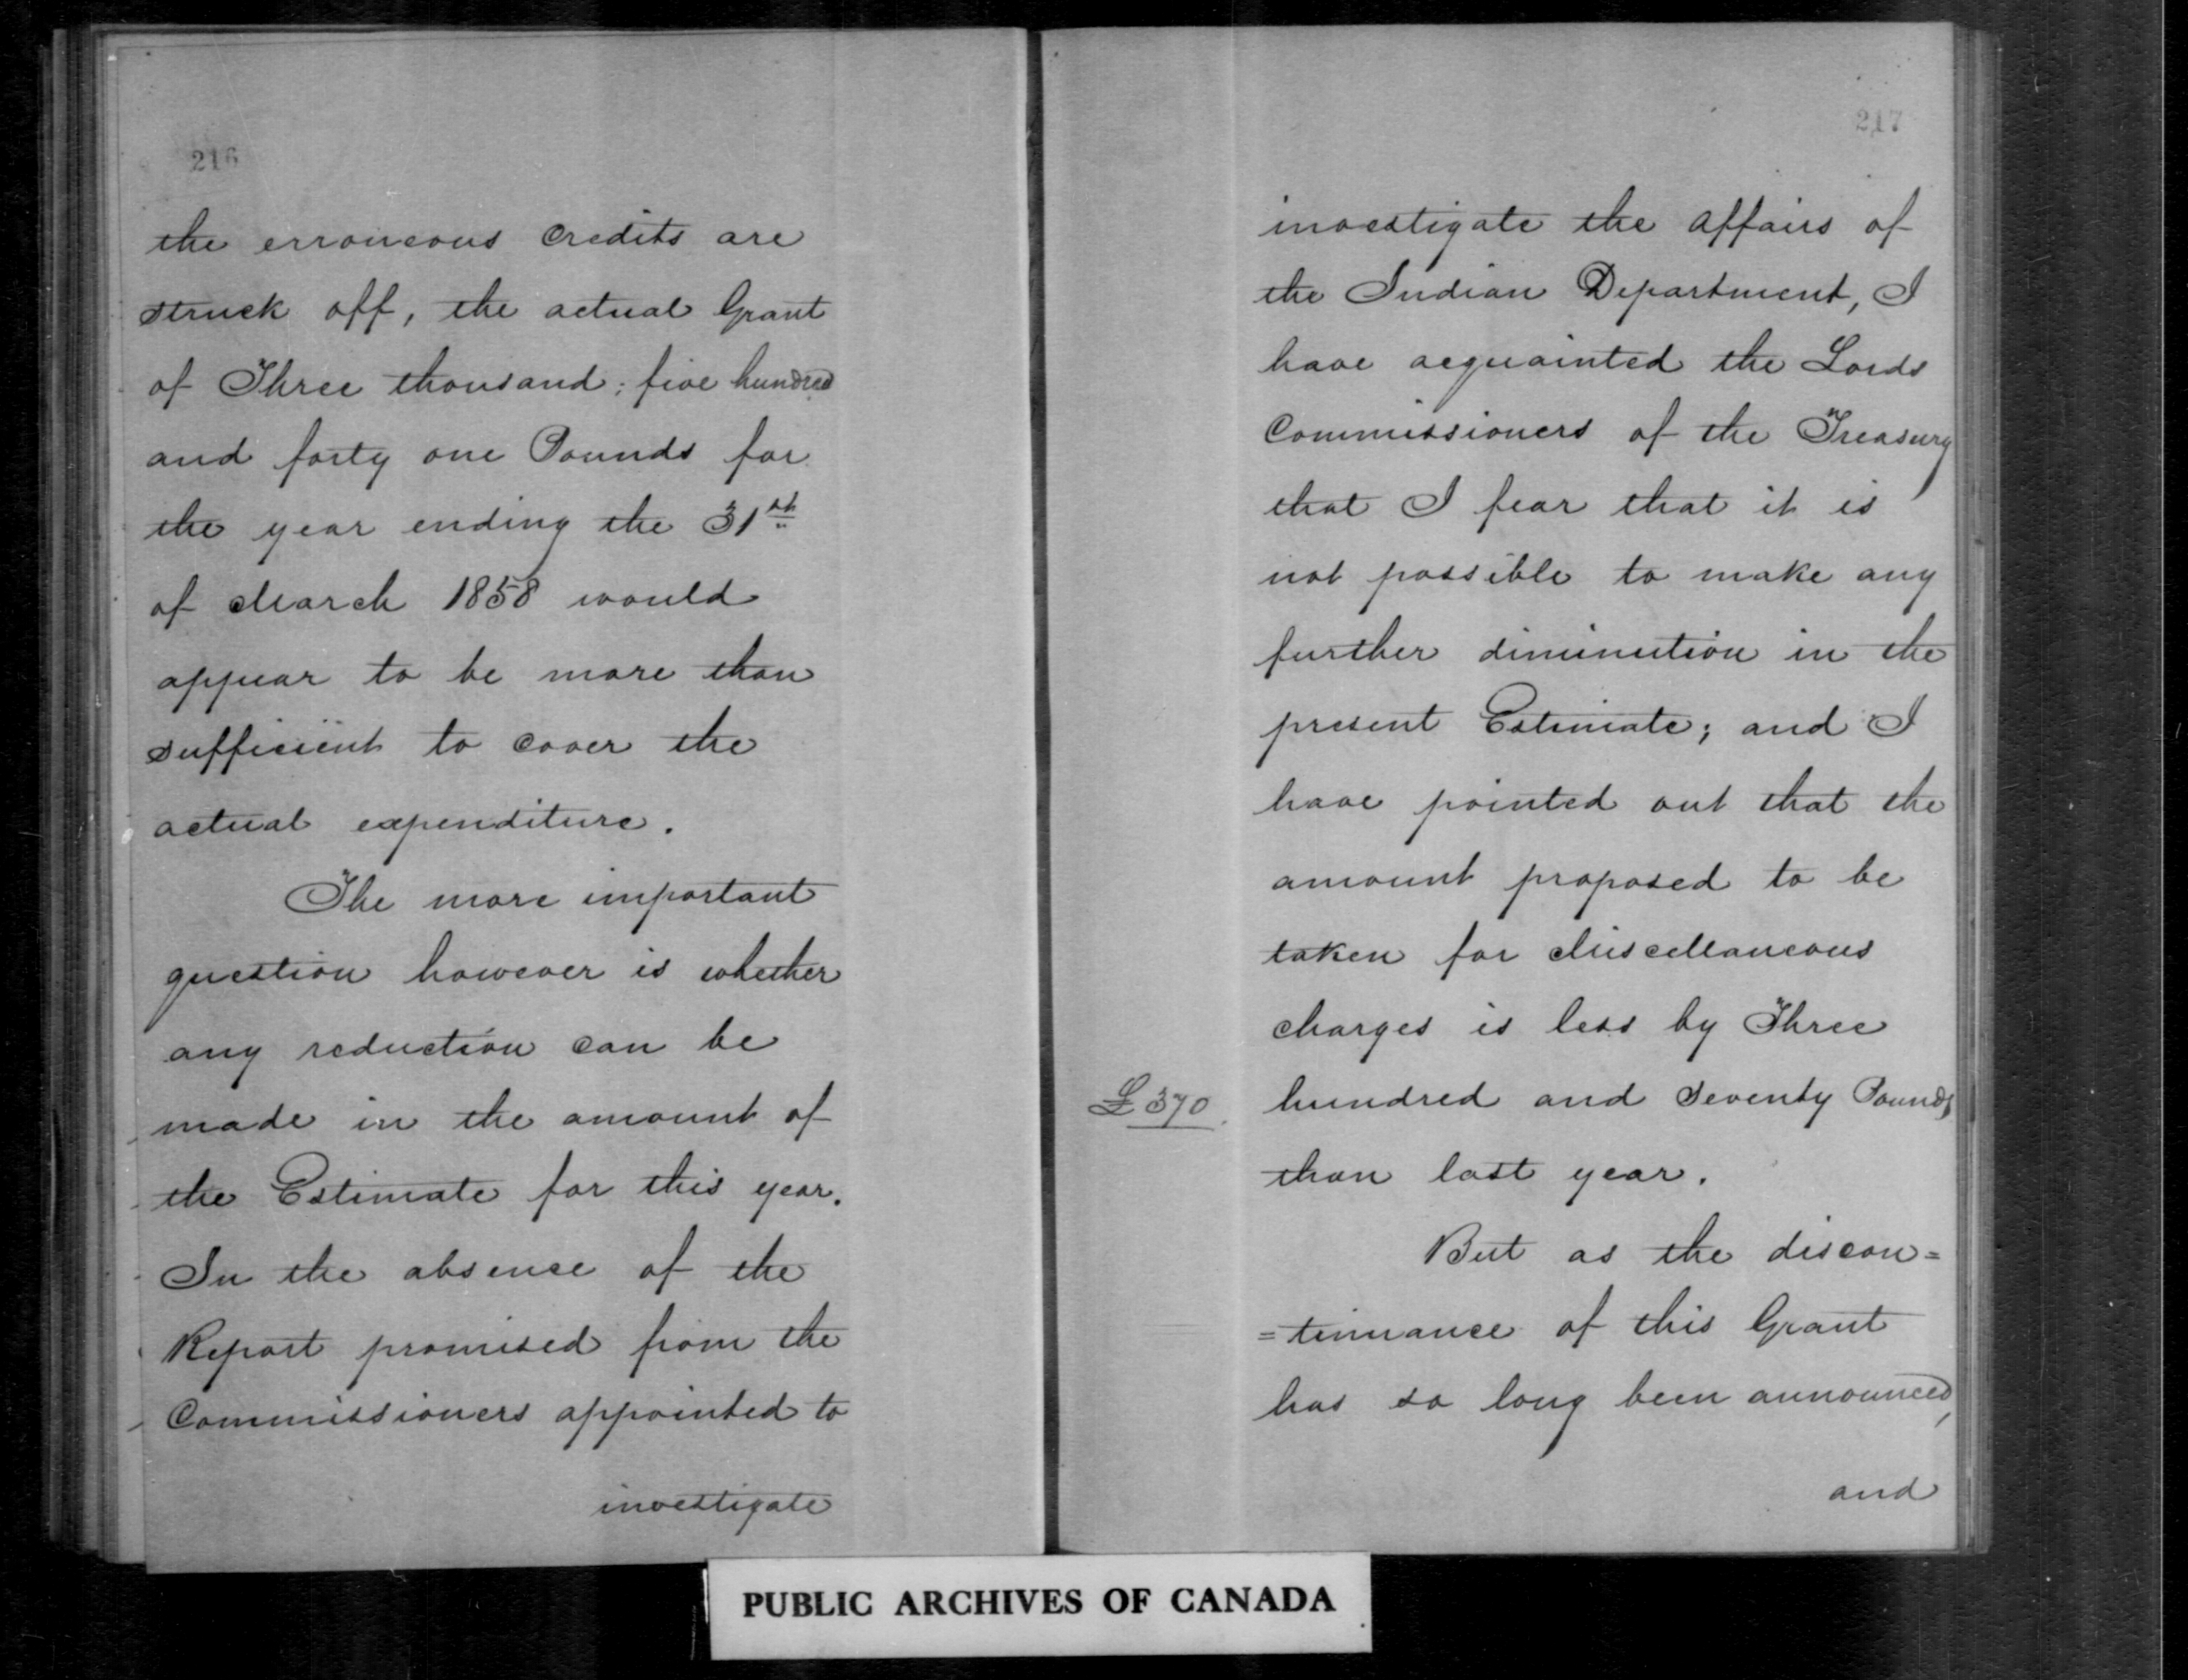 216
the erroneous credits are
struck off, the actual Grant
of Three thousand; five hundred
and forty one Pounds for
the year ending the 31st
of March 1858 would
appear to be more than
sufficient to cover the
actual expenditure.
The more important
question however is whether
any reduction can be
made in the amount of
the Estimate for this year.
In the absence of the
Report promised from the
Commissioners appointed to
investigate
217
investigate the affairs of
the Indian Department, I
have acquainted the Lords
Commissioners of the Treasury
that I fear that it is
not possible to make any
further diminution in the
present Estimate; and I
have pointed out that the
amount proposed to be
taken for Miscellaneous
charges is less by Three
£370. hundred and seventy Pounds
than last year.
But as the discon=
=tinuance of this Grant
has so long been announced,
and
PUBLIC ARCHIVES OF CANADA